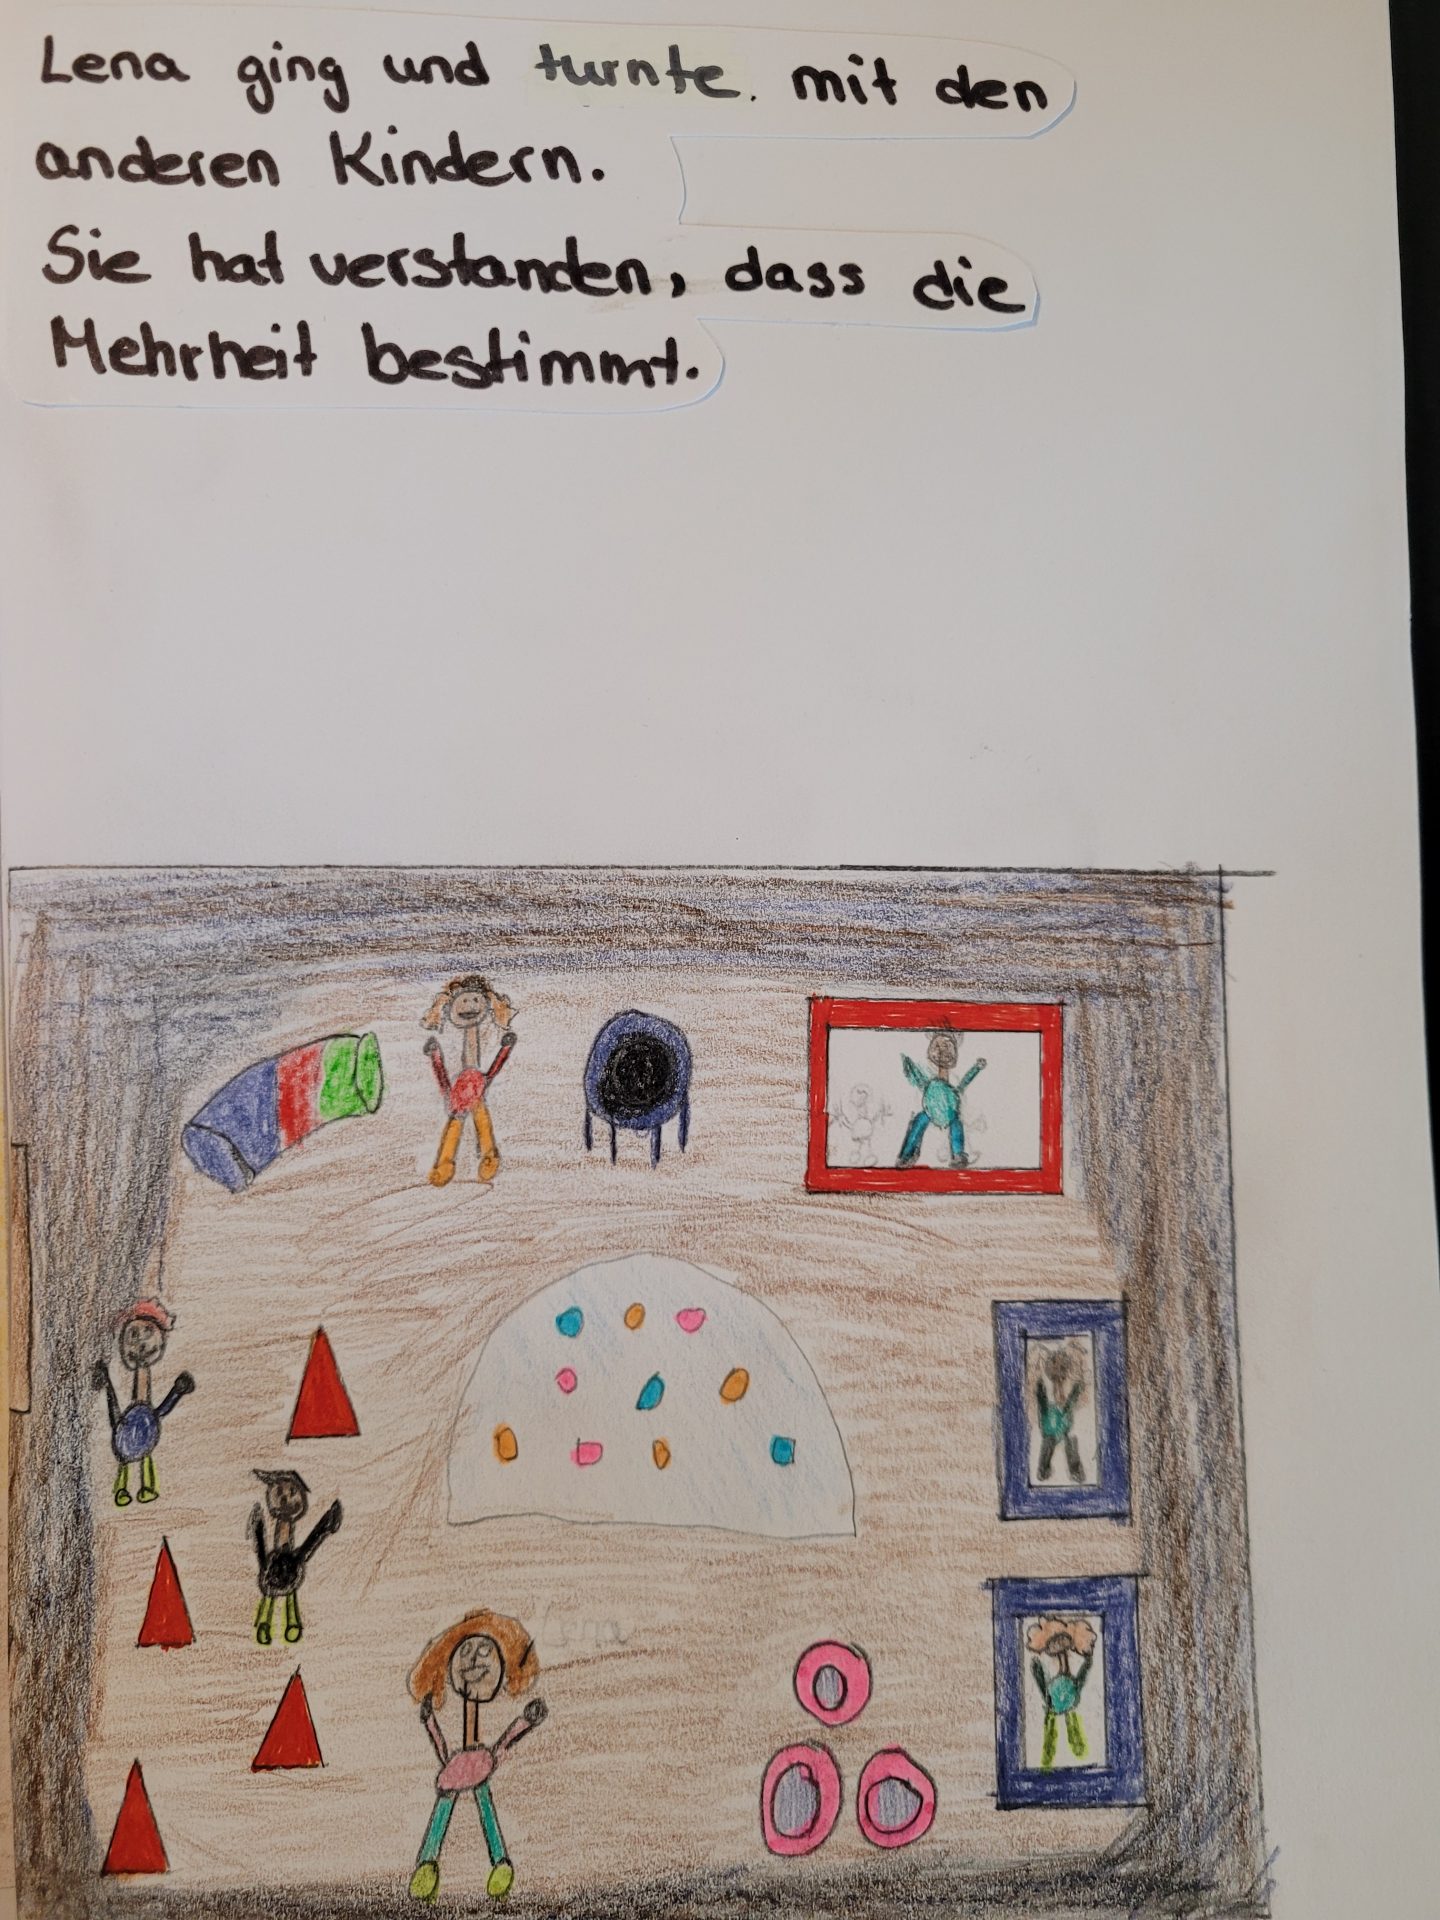 Lena ging und turnte. mit den
anderen Kindern.
Sie hat verstanden, dass die
Mehrheit bestimmt.